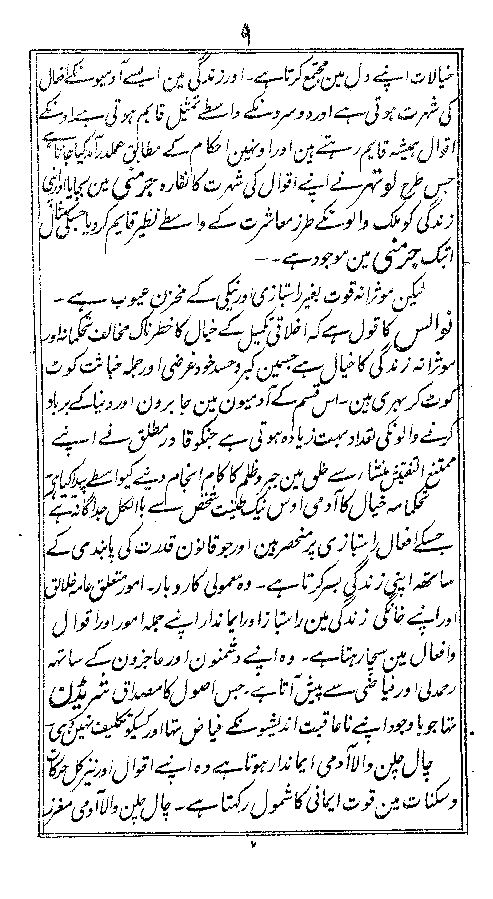 ۹
خیالات اپنے دل مین مجتمع کرتا ہے۔ اور زندگی مین ایسے آدمیونکے افعال
کی شہرت ہوتی ہے اور دوسرونکے واسطے تمثیل قایم ہوتی ہے اونکے
اقوال ہمیشہ قایم رہتے ہین اور اونہین احکام کے مطابق عملدرآمد کیا جاتا ہے
جس طرح لوتھر نے اپنے اقوال کی شہرت کا نقارہ جرمنی مین بجایا اور اپنی
زندگی کو ملک والونکے طرز معاشرت کے واسطے نظیر قایم کر دیا جسکی مثال
ابتک جرمنی مین موجود ہے۔
لیکن موثرانہ قوت بغیر راستبازی اور نیکی کے مخزن عیوب ہے۔
نوالس کا قول ہے کہ اخلاقی تکمیل کے خیال کا خطرناک مخالف تحکمانہ اور
موثرانہ زندگی کا خیال ہے جسمین کبر و حسد خود غرضی اور جملہ خباثت کوٹ
کوٹ کر بہری ہین۔ اس قسم کے آدمیون مین جابرون اور دنیا کے برباد
کرنے والونکی تعداد بہت زیادہ ہوتی ہے جنکو قادر مطلق نے اپنے
ممتنع التفتیش منشاء سے خلق مین جبر و ظلم کا کام انجام دینے کیواسطے پیدا کیا ہی
تحکمانہ خیال کا آدمی اوس نیک طینت شخص سے بالکل جداگانہ ہے
جسکے افعال راستبازی پر منحصر ہین اور جو قانون قدرت کی پابندی کے
ساتھہ اپنی زندگی بسر کرتا ہے۔ وہ معمولی کاروبار۔ امور متعلق عامہ خلائق
اور اپنے خانگی زندگی مین راستباز اور ایماندار اپنے جملہ امور اور اقوال
و افعال مین سچا رہتا ہے۔ وہ اپنے دشمنون اور عاجزون کے ساتھہ
رحمدلی اور فیاضی سے پیش آتا ہے۔ جس اصول کا مصداق شریڈن
تھا جو باوجود اپنے ناعاقبت اندیشیونکے فیاض تھا اور کسیکو تکلیف نہین دی
چال چلن والا آدمی ایماندار ہوتا ہے وہ اپنے اقوال اور نیز کل حرکات
و سکنات مین قوت ایمانی کا شمول رکھتا ہے۔ چال چلن والا آدمی معزز